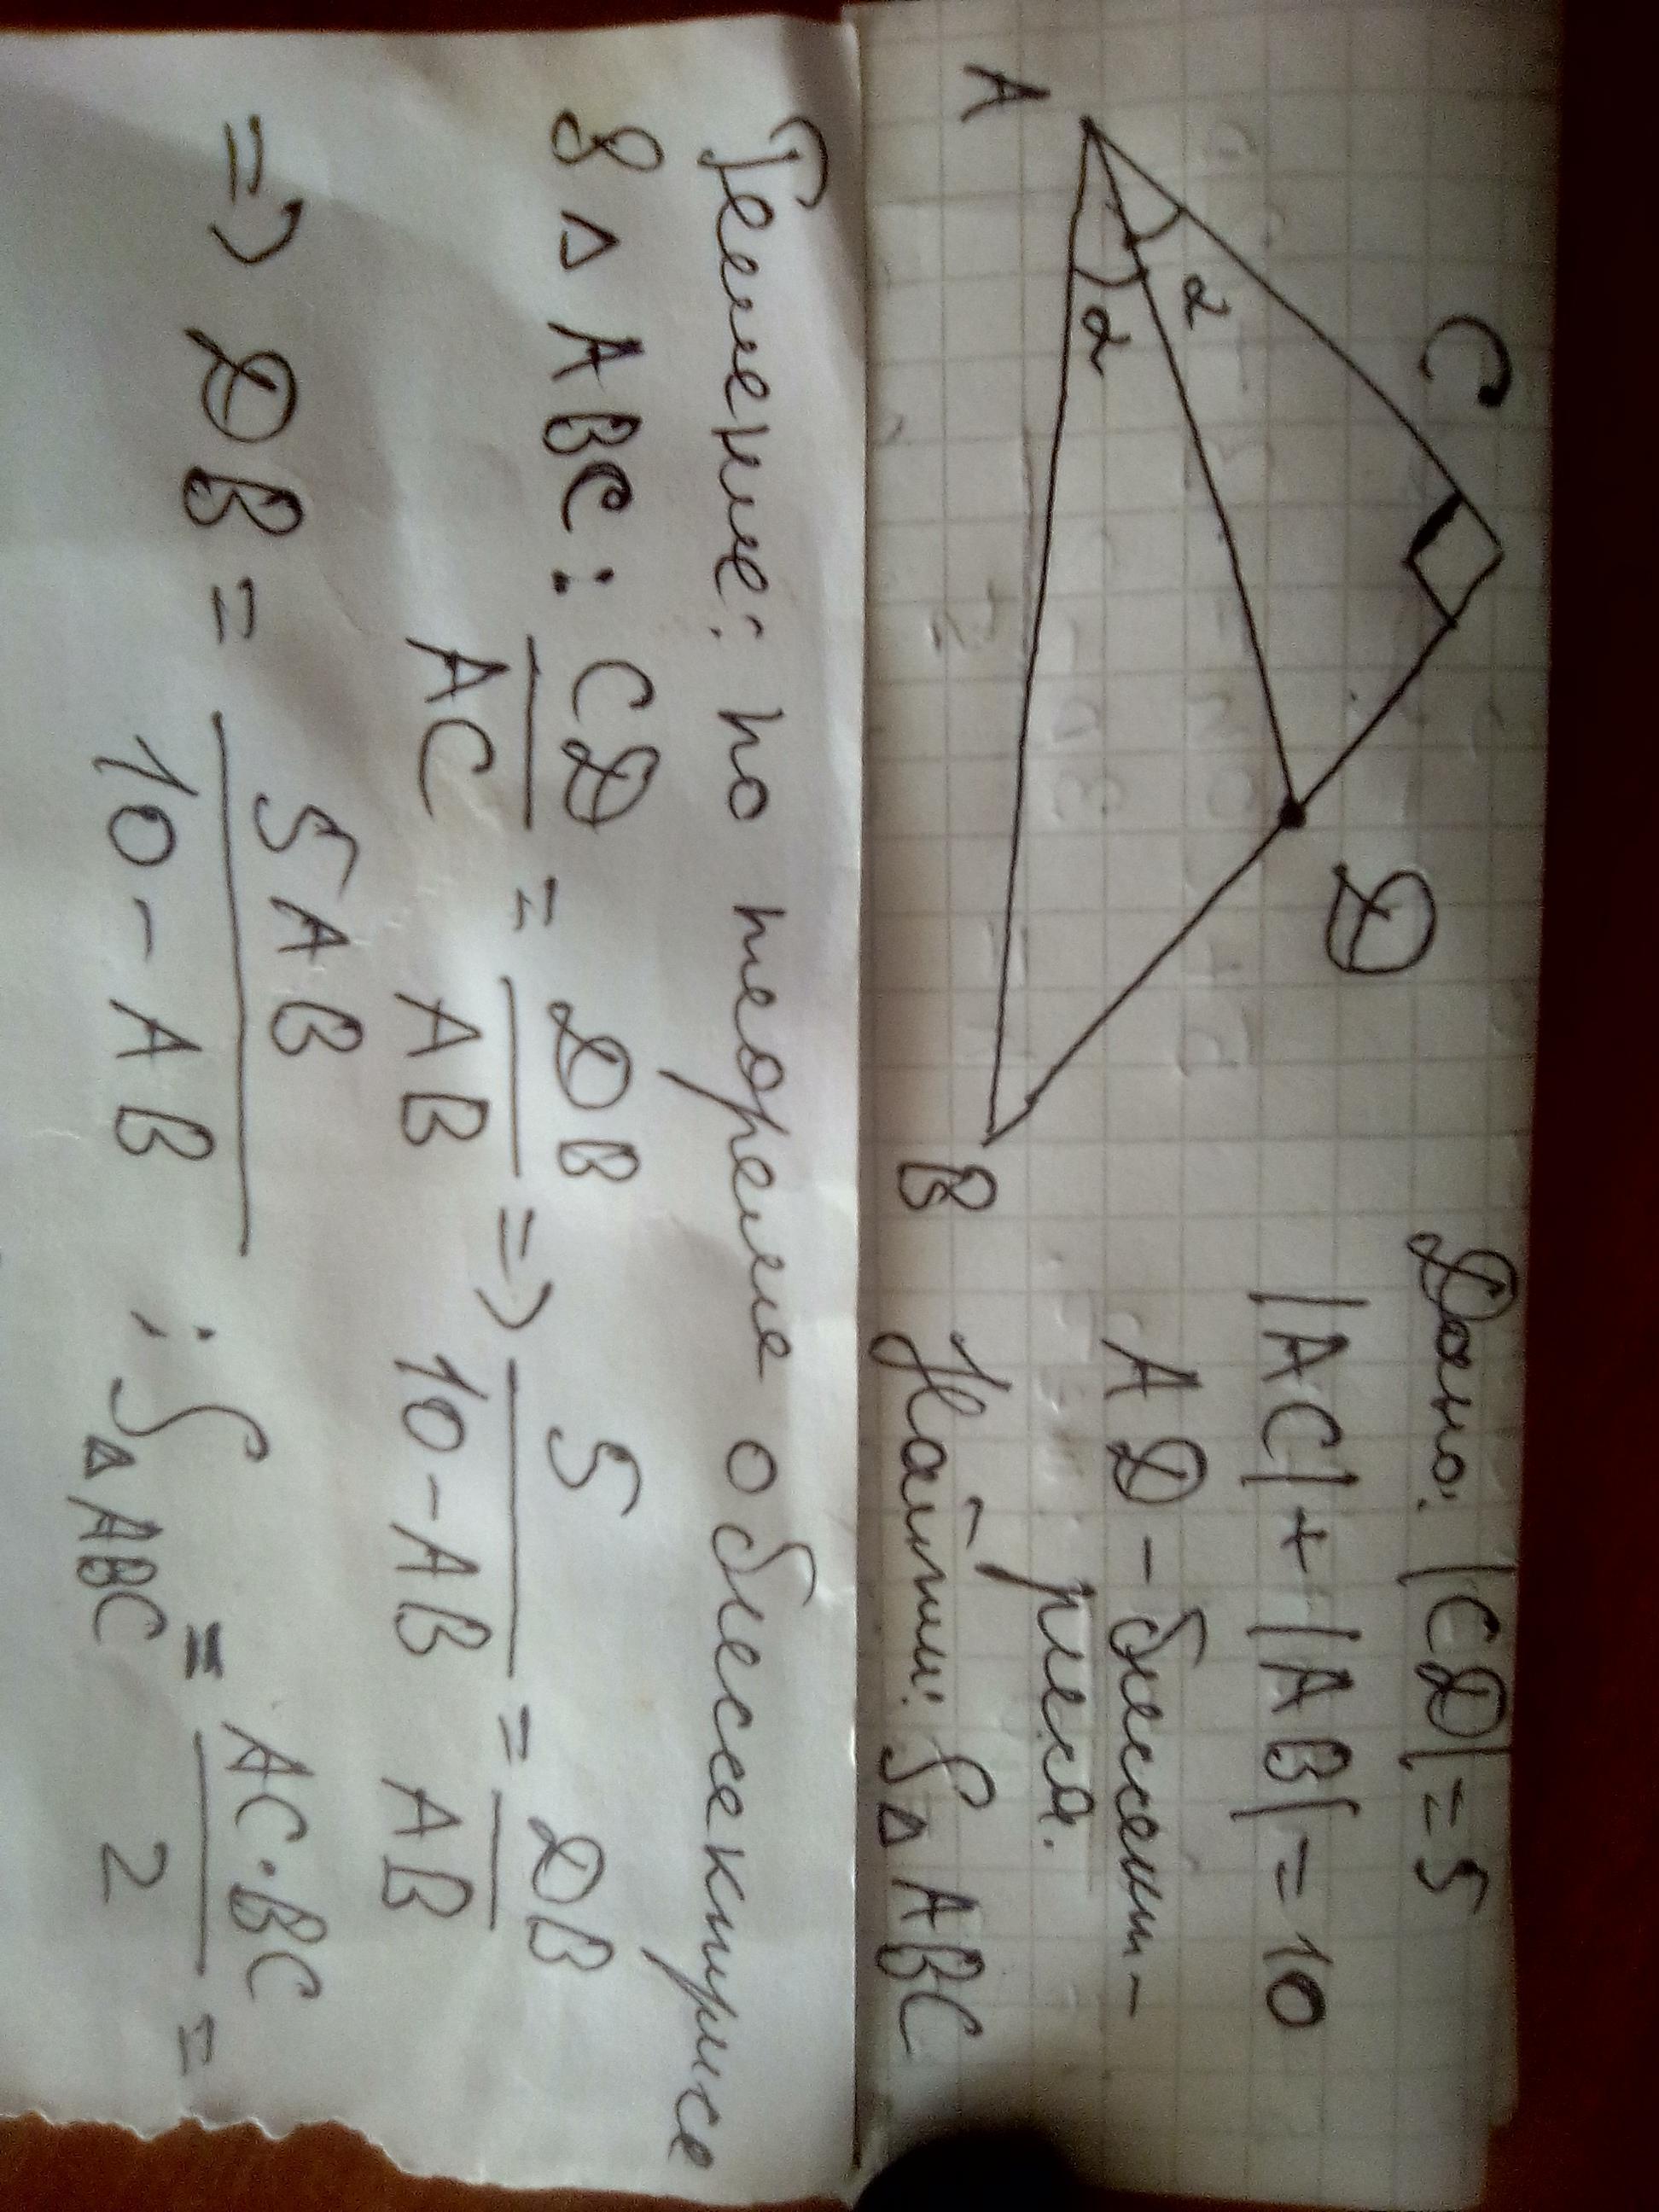 C
D
A
α
α
B
Дано: |CD|=5
|AC|+|AB|=10
AD - биссект-
риса.
Найти: S△ABC
Решение: по теореме о биссектрисе
в △ABC: CD/AC = DB/AB => 5/(10-AB) = DB/AB
=> DB = 5AB/(10-AB) ; S△ABC = AC·BC/2 =